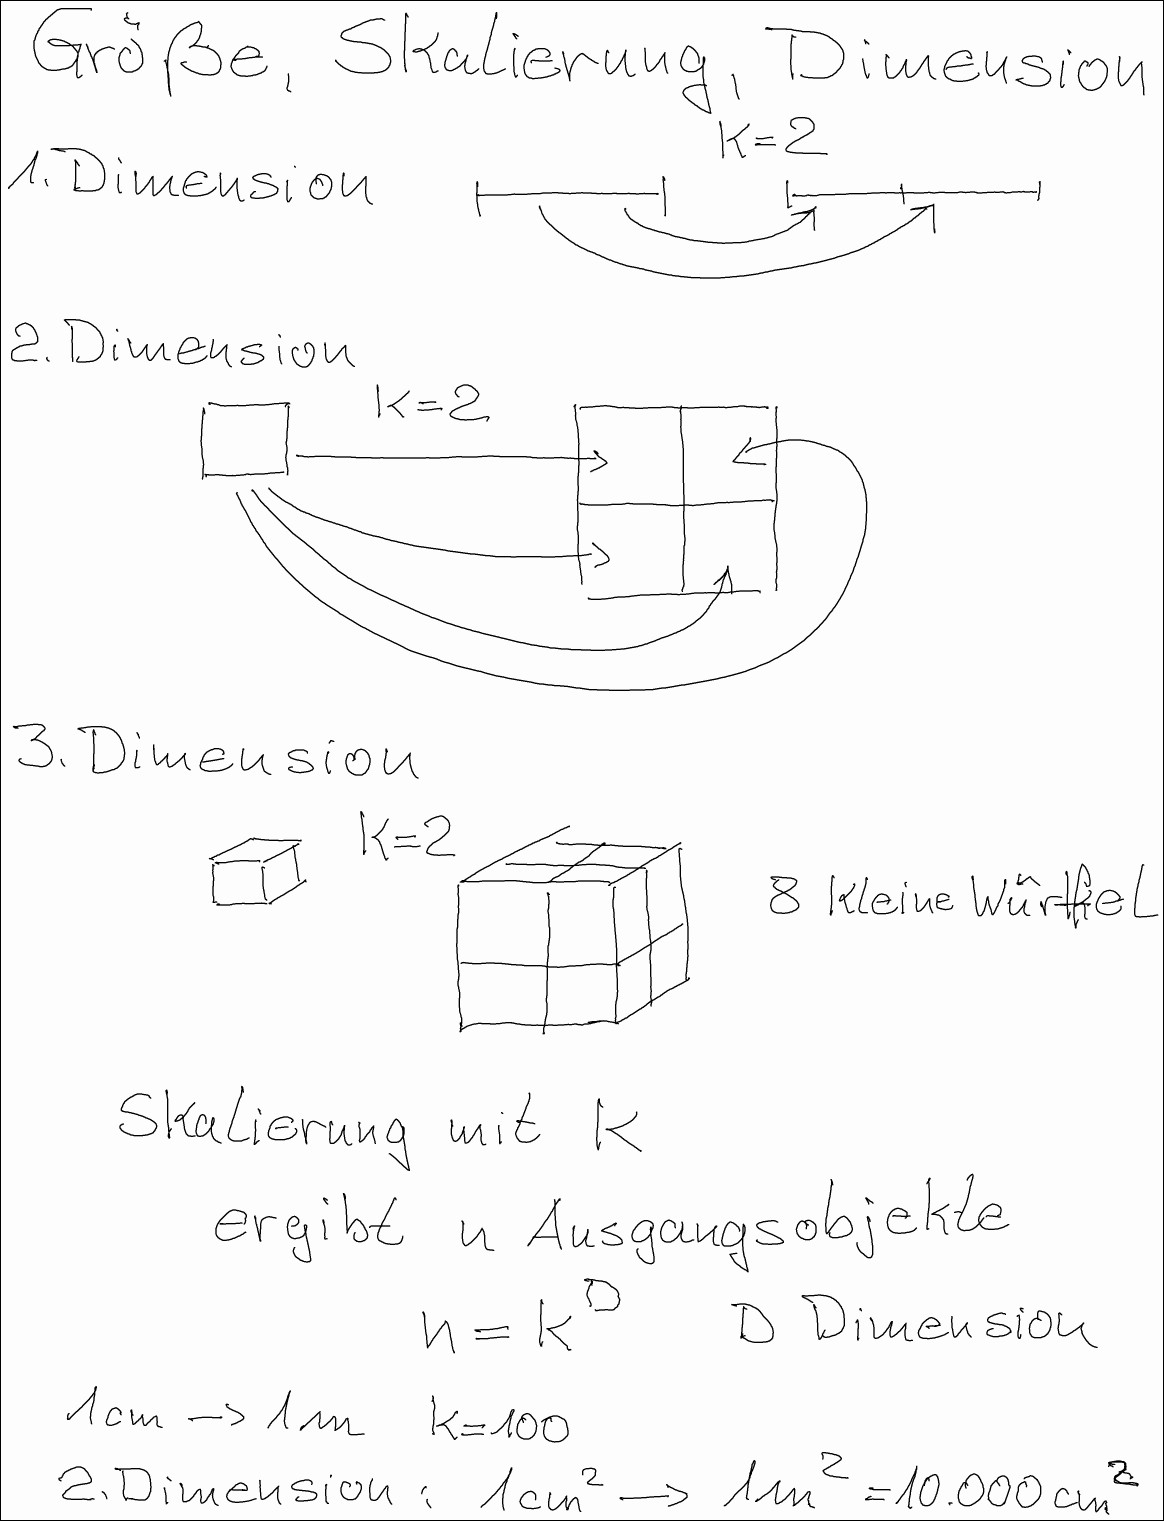 Größe, Skalierung, Dimension
k=2
1. Dimension
2. Dimension
k=2
3. Dimension
k=2
8 kleine Würfel
Skalierung mit k
ergibt n Ausgangsobjekte
n = k^D D Dimension
1cm -> 1m k=100
2. Dimension: 1cm² -> 1m² = 10.000 cm²